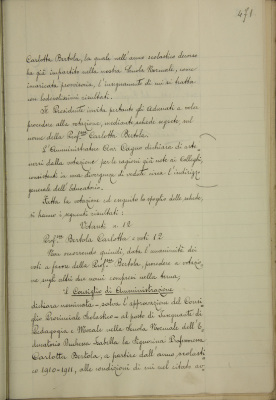 471
Carlotta Bertola, la quale nell'anno scolastico decorso
ha già impartito nella nostra Scuola Normale, come
incaricata provvisoria, l'insegnamento di cui si tratta
con lodevolissimi risultati.
Il Presidente invita pertanto gli Adunati a voler
procedere alla votazione, mediante schede segrete sul
nome della Prof.ssa Carlotta Bertola.
L'Amministratore Avv. Cagno dichiara di aste-
nersi dalla votazione per le ragioni già note ai Colleghi,
consistenti in una divergenza di vedute circa l'indirizzo
generale dell'Educatorio.
Fatta la votazione ed eseguito lo spoglio delle schede,
si hanno i seguenti risultati:
Votanti n. 12
Prof.ssa Bertola Carlotta: voti 12.
Non occorrendo quindi, data l'unanimità dei
voti a favore della Prof.ssa Bertola, procedere a votazio-
ne sugli altri due nomi compresi nella terna;
il Consiglio di Amministrazione
dichiara nominata - salva l'approvazione del Consi-
glio Provinciale Scolastico - al posto di Insegnante di
Pedagogia e Morale nella Scuola Normale dell'E-
ducatorio Duchessa Isabella la Signorina Professoressa
Carlotta Bertola, a partire dall'anno scolasti-
co 1910-1911, alle condizioni di cui nel citato av-